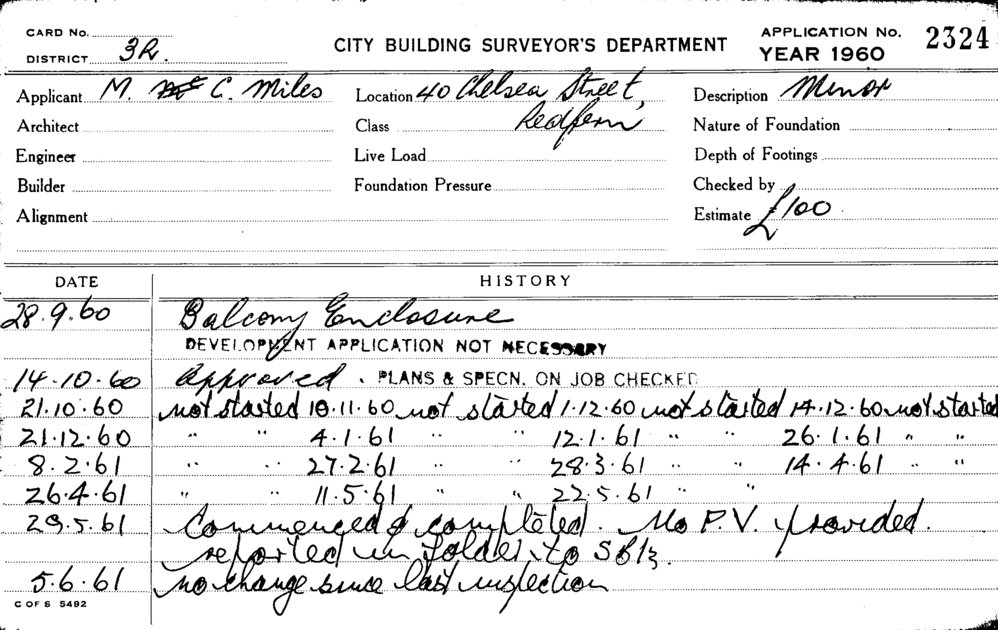 CARD No.
DISTRICT 3R.
CITY BUILDING SURVEYOR'S DEPARTMENT
APPLICATION No. 2324
YEAR 1960
Applicant M. C. Miles
Location 40 Chelsea Street,
Description Minor
Architect
Class Redfern
Nature of Foundation
Engineer
Live Load
Depth of Footings
Builder
Foundation Pressure
Checked by
Alignment
Estimate £100
DATE HISTORY
28.9.60 Balcony Enclosure
DEVELOPMENT APPLICATION NOT NECESSARY
14.10.60 Approved. PLANS & SPECN. ON JOB CHECKED
21.10.60 not started 10.11.60 not started 1.12.60 not started 14.12.60 not started
21.12.60 " " 4.1.61 " " 12.1.61 " " 26.1.61 " "
8.2.61 " " 27.2.61 " " 28.3.61 " " 14.4.61 " "
26.4.61 " " 11.5.61 " " 22.5.61 " "
29.5.61 Commenced & completed. No P.V. provided.
reported in folder to
5.6.61 no change since last inspection
C OF S 5492